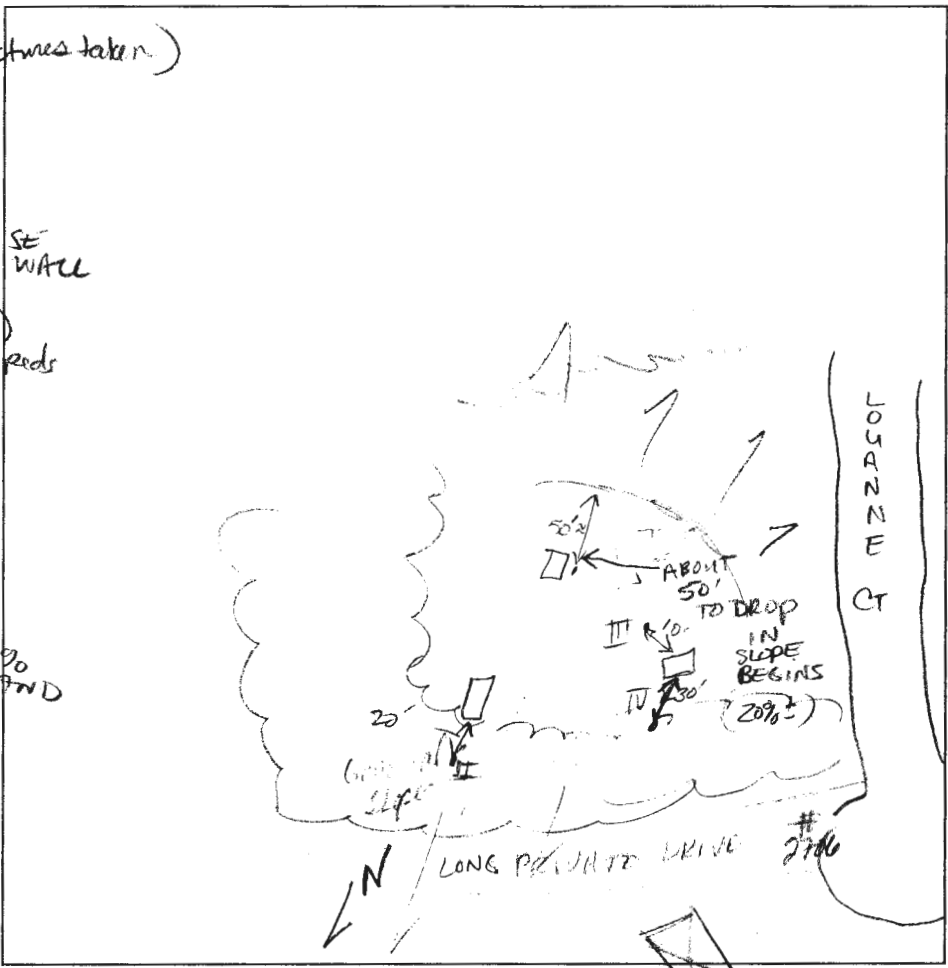 tures taken)
SE
WALL
peds
%
AND
50'±
ABOUT
50'
TO DROP
IN
SLOPE
BEGINS
(20%±)
III
10'
IV
30'
20'
II
slope
LOUANNE CT
N
LONG PRIVATE DRIVE
#
2706